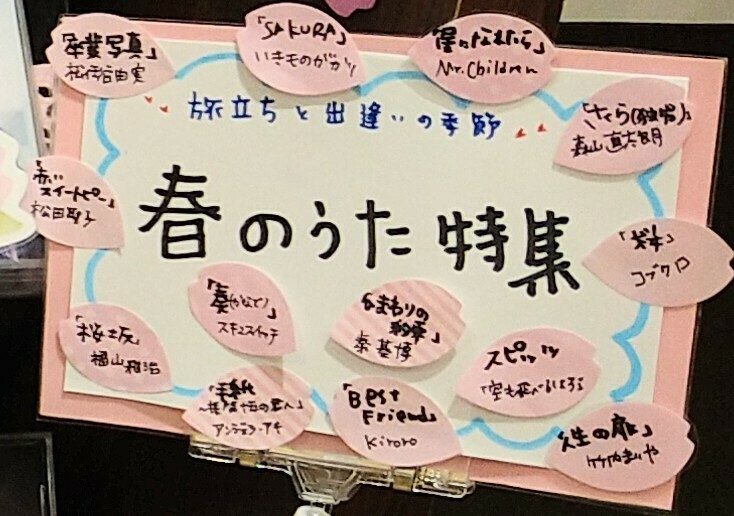 「卒業写真」
松任谷由実
「SAKURA」
いきものがかり
Mr.Children
「さくら(独唱)」
森山直太朗
旅立ちと出逢いの季節
春のうた特集
「赤いスイートピー」
松田聖子
コブクロ
「桜坂」
福山雅治
「奏(かなで)」
スキマスイッチ
「ひまわりの
約束」
秦基博
スピッツ
「空も飛べるはず」
「手紙
〜拝啓 十五の君へ〜」
アンジェラ・アキ
「Best
Friend」
Kiroro
「人生の扉」
竹内まりや